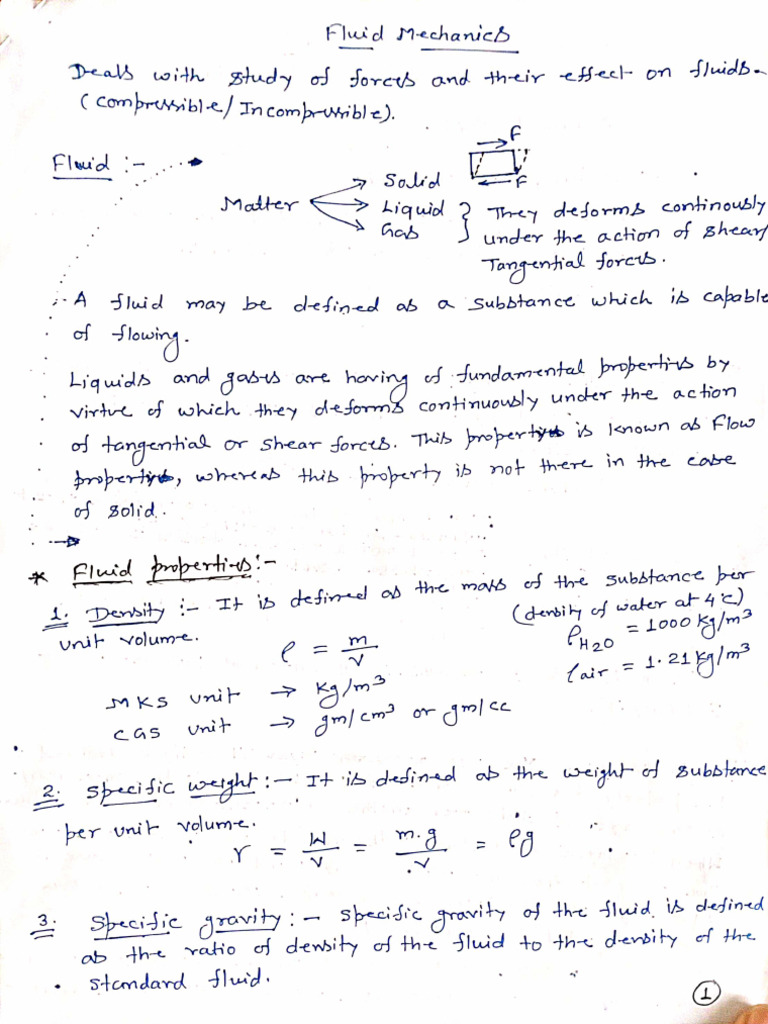 Fluid Mechanics
Deals with study of forces and their effect on fluids.
(compressible/Incompressible).
F
Fluid :-
F
Solid
Matter
Liquid
Gas
They deforms continously
under the action of shear/
Tangential forces.
A fluid may be defined as a substance which is capable
of flowing.
Liquids and gases are having of fundamental properties by
virtue of which they deforms continuously under the action
of tangential or shear forces. This property is known as Flow
property, whereas this property is not there in the case
of solid.
* Fluid properties:-
1. Density :- It is defined as the mass of the substance per
unit volume.
(density of water at 4°C)
ρ = m/v
ρH2O = 1000 kg/m³
ρair = 1.21 kg/m³
MKS unit → kg/m³
CGS unit → gm/cm³ or gm/cc
2. Specific weight:- It is defined as the weight of substance
per unit volume.
γ = W/v = m.g/v = ρg
3. Specific gravity:- specific gravity of the fluid is defined
as the ratio of density of the fluid to the density of the
standard fluid.
1